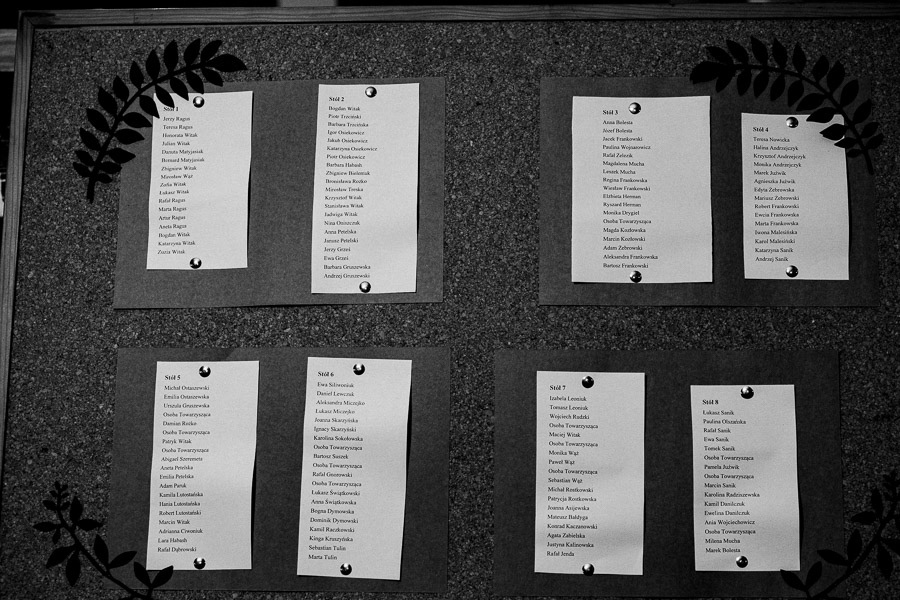 Stół 1
Jerzy Ragus
Teresa Ragus
Honorata Witak
Julian Witak
Danuta Matyjasiak
Bernard Matyjasiak
Zbigniew Witak
Mirosław Wąż
Zofia Witak
Łukasz Witak
Rafał Ragus
Marta Ragus
Artur Ragus
Aneta Ragus
Bogdan Witak
Katarzyna Witak
Zuzia Witak
Stół 2
Bogdan Witak
Piotr Trzciński
Barbara Trzcińska
Igor Osiekowicz
Jakub Osiekowicz
Katarzyna Osiekowicz
Piotr Osiekowicz
Barbara Habash
Zbigniew Bieleniuk
Bronisława Rożko
Mirosław Toroka
Krzysztof Witak
Stanisława Witak
Jadwiga Witak
Nina Oniszczuk
Anna Petelska
Janusz Petelski
Jerzy Grześ
Ewa Grześ
Barbara Gruszewska
Andrzej Gruszewski
Stół 3
Anna Bolesta
Józef Bolesta
Jacek Frankowski
Paulina Wojnarowicz
Rafał Żelazik
Magdalena Mucha
Leszek Mucha
Regina Frankowska
Wiesław Frankowski
Elżbieta Herman
Ryszard Herman
Monika Drygiel
Osoba Towarzysząca
Magda Kozłowska
Marcin Kozłowski
Adam Żebrowski
Aleksandra Frankowska
Bartosz Frankowski
Stół 4
Teresa Nowicka
Halina Andrzejczyk
Krzysztof Andrzejczyk
Monika Andrzejczyk
Marek Juźwik
Agnieszka Juźwik
Edyta Żebrowska
Mariusz Żebrowski
Robert Frankowski
Ewcia Frankowska
Marta Frankowska
Iwona Malesińska
Karol Malesiński
Katarzyna Sanik
Andrzej Sanik
Stół 5
Michał Ostaszewski
Emilia Ostaszewska
Urszula Gruszewska
Osoba Towarzysząca
Damian Rożko
Osoba Towarzysząca
Patryk Witak
Osoba Towarzysząca
Abigael Szeremets
Aneta Petelska
Emilia Petelska
Adam Paruk
Kamila Lutostańska
Hania Lutostańska
Robert Lutostański
Marcin Witak
Adrianna Czwoniuk
Lara Habash
Rafał Dąbrowski
Stół 6
Ewa Siliwoniuk
Daniel Lewczuk
Aleksandra Miczejko
Łukasz Miczejko
Joanna Skarzyńska
Ignacy Skarzyński
Karolina Sokołowska
Osoba Towarzysząca
Bartosz Suszek
Osoba Towarzysząca
Rafał Gozdowski
Osoba Towarzysząca
Łukasz Świątkowski
Anna Świątkowska
Bogna Dymowska
Dominik Dymowski
Kamil Raczkowski
Kinga Kruszyńska
Sebastian Tulin
Marta Tulin
Stół 7
Izabela Leoniuk
Tomasz Leoniuk
Wojciech Rudzki
Osoba Towarzysząca
Maciej Witak
Osoba Towarzysząca
Monika Wąż
Paweł Wąż
Osoba Towarzysząca
Sebastian Wąż
Michał Rostkowski
Patrycja Rostkowska
Joanna Azijewska
Mateusz Bałdyga
Konrad Kaczanowski
Agata Zabielska
Justyna Kalinowska
Rafał Jenda
Stół 8
Łukasz Sanik
Paulina Olszańska
Rafał Sanik
Ewa Sanik
Tomek Sanik
Osoba Towarzysząca
Pamela Juźwik
Osoba Towarzysząca
Marcin Sanik
Karolina Radziszewska
Kamil Danilczuk
Ewelina Danilczuk
Ania Wojciechowicz
Osoba Towarzysząca
Milena Mucha
Marek Bolesta